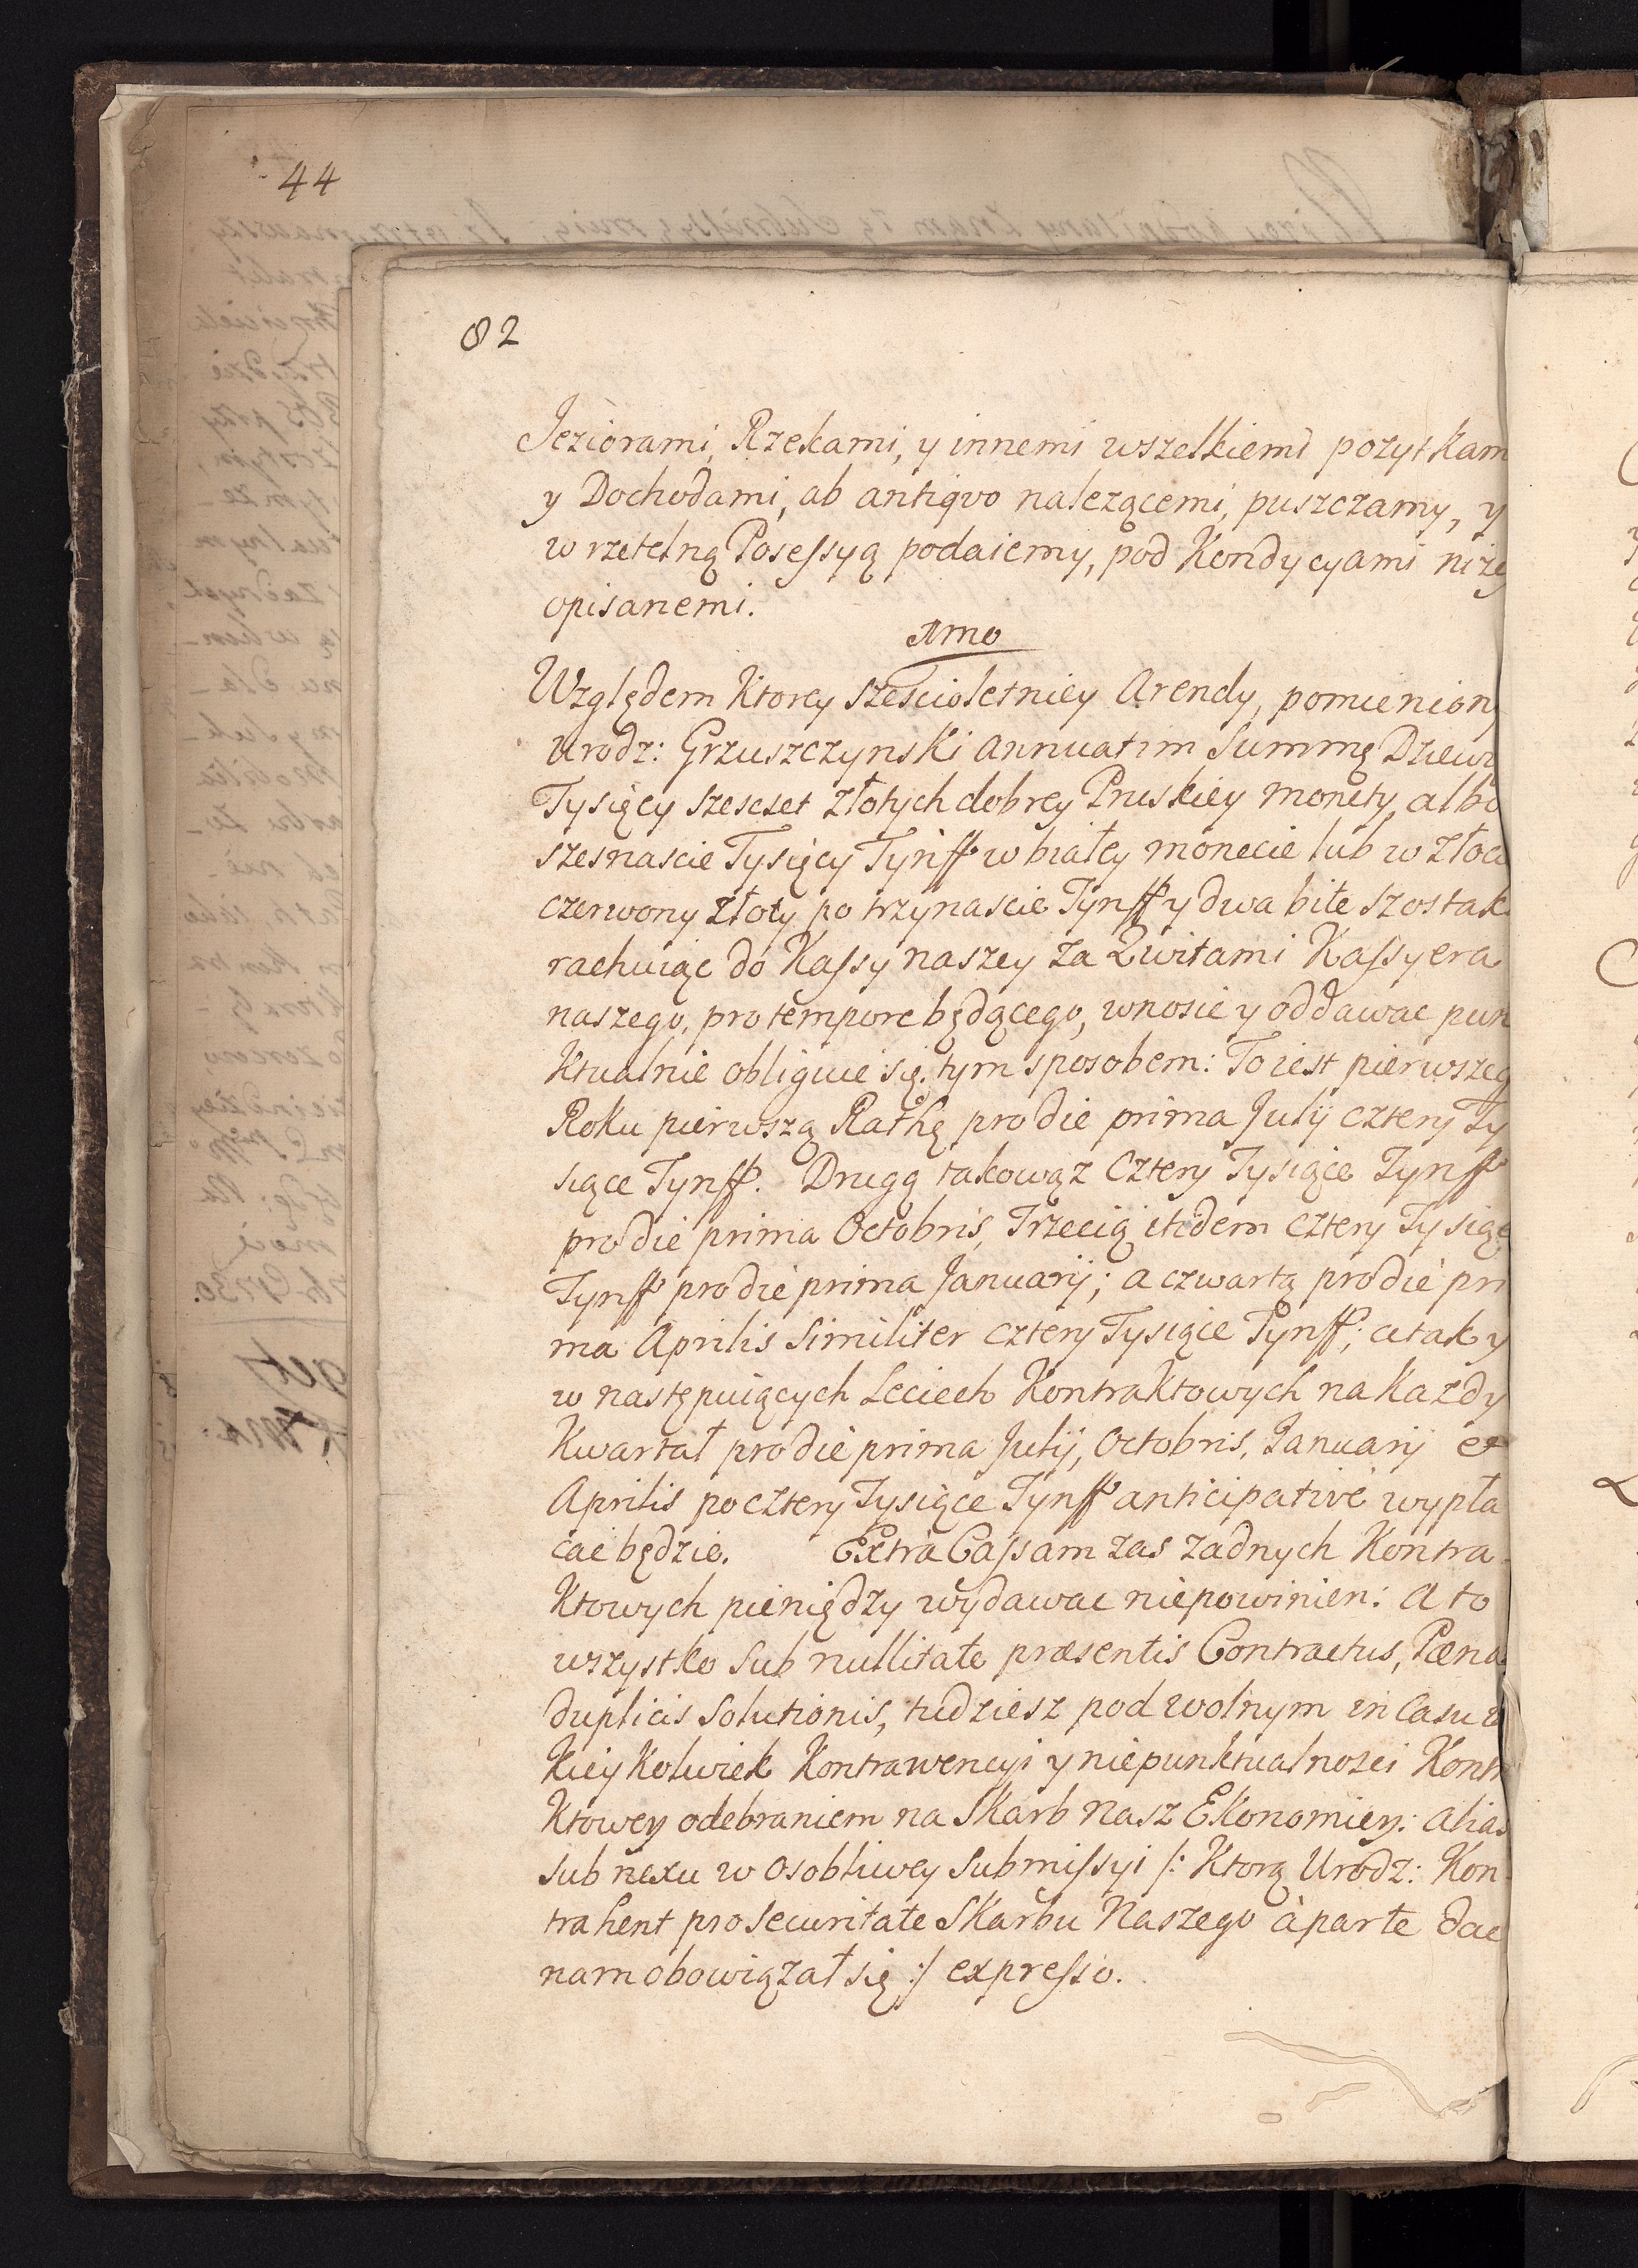 44
82
Jeziorami, Rzekami, y innemi wszelkiemi pozytkam
y Dochodami, ab antiqvo nalezącemi, puszczamy, y
w rzetelną Posessyą podaiemy, pod Kondycyami niże
opisanemi.
1mo
Względem Ktorey sześcioletniey Arendy, pomienion
Urodz: Grzuszczynski annuatim Summę Dziewi
Tysięcy szescset złotych dobrey Pruskiey monety, albo
szesnascie Tysięcy Tynff w białey monecie lub w złoci
czerwony złoty po trzynascie Tynff y dwa bite szostak
rachuiąc do Kassy naszey za Qwitami Kassyera
naszego, pro tempore będącego, wnosic y oddawac pun
ktualnie obliguie się tym sposobem: To iest pierwszeg
Roku pierwszą Rathę pro die prima Julij cztery Ty
siące Tynff. Drugą takowąz Cztery Tysiące Tynff
pro die prima Octobris, Trzecią itidem cztery Tysiące
Tynff pro die prima Januarij; a czwartą pro die pri
ma Aprilis Similiter cztery Tysiące Tynff; a tak y
w następuiących Leciech Kontraktowych na Kazdy
Kwartał pro die prima Julij, Octobris, Januarij et
Aprilis po cztery Tysiące Tynff anticipative wypła
cac będzie. Extra Cassam zas zadnych Kontra
Ktowych pieniędzy wydawac niepowinien: a to
wszystko Sub nullitate præsentis Contractus, Pæna
duplicis Solutionis, tudziesz pod wolnym in Casu
Kiey Kolwiek Kontrawencyi y niepunktualnosci Kontr
Ktowey odebraniem na Skarb Nasz Ekonomiey: alias
Sub nexu w osobliwey Submissyi /: Ktorą Urodz: Kon
trahent pro Securitate Skarbu Naszego àparte dac
nam obowiązał się :/ expresso.